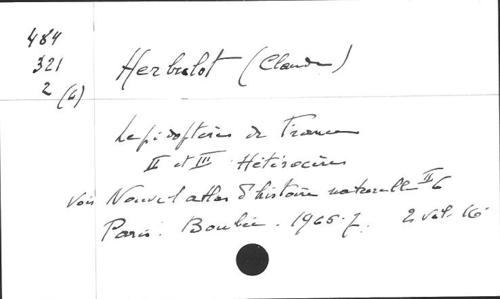 484
321
2 (6)
Herbulot (Claude)
Lépidoptères de France
II et III Hétérocères
Voir Nouvel atlas d'histoire naturelle II 6
Paris. Boubée. 1965. 2 vol. 16